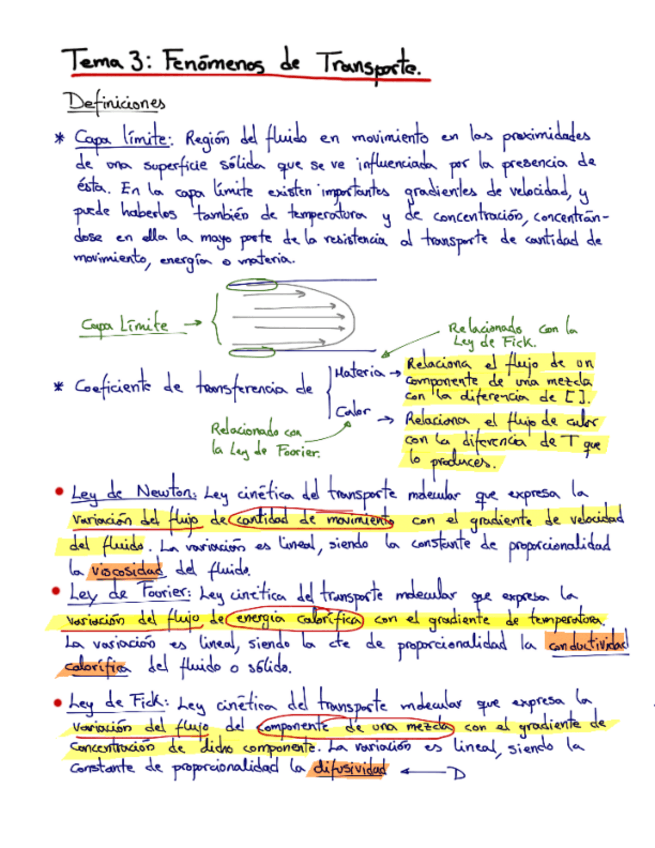 Tema 3: Fenómenos de Transporte.
Definiciones
* Capa límite: Región del fluido en movimiento en las proximidades
de una superficie sólida que se ve influenciada por la presencia de
ésta. En la capa límite existen importantes gradientes de velocidad, y
puede haberlos también de temperatura y de concentración, concentrán-
dose en ella la mayo parte de la resistencia al transporte de cantidad de
movimiento, energía o materia.
Capa Límite →
Relacionado con la
Ley de Fick.
* Coeficiente de transferencia de
Materia →
Relaciona el flujo de un
componente de una mezcla
con la diferencia de [ ].
Calor →
Relaciona el flujo de calor
con la diferencia de T que
lo produces.
Relacionado con
la Ley de Fourier.
• Ley de Newton: Ley cinética del transporte molecular que expresa la
variación del flujo de cantidad de movimiento con el gradiente de velocidad
del fluido. La variación es lineal, siendo la constante de proporcionalidad
la viscosidad del fluido.
• Ley de Fourier: Ley cinética del transporte molecular que expresa la
variación del flujo de energía calorífica con el gradiente de temperatura.
La variación es lineal, siendo la cte de proporcionalidad la conductividad
calorífica del fluido o sólido.
• Ley de Fick: Ley cinética del transporte molecular que expresa la
variación del flujo del componente de una mezcla con el gradiente de
concentración de dicho componente. La variación es lineal, siendo la
constante de proporcionalidad la difusividad ← D